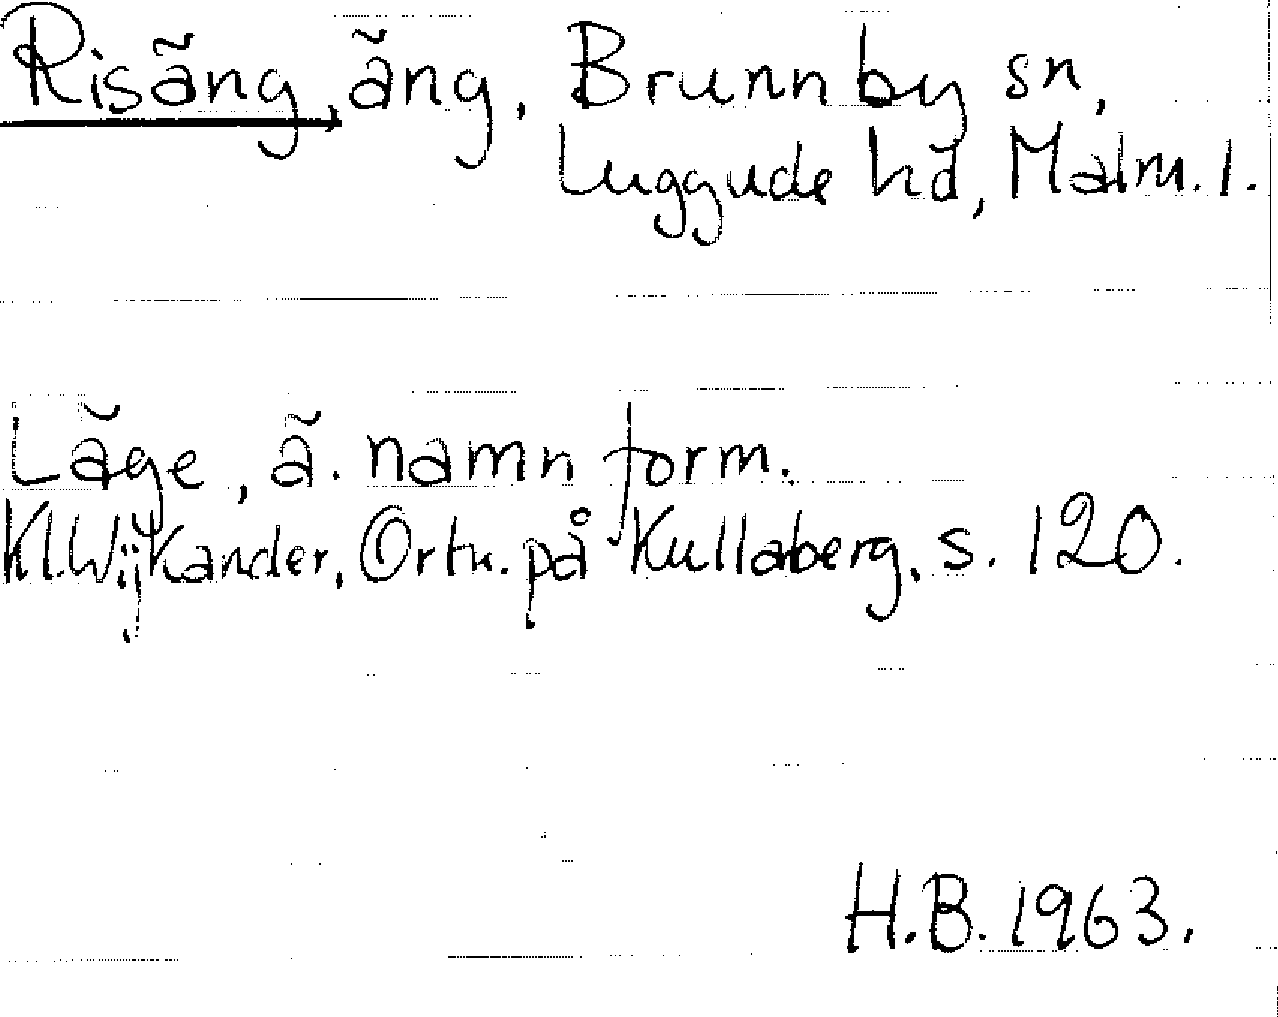 Risäng, äng, Brunnby sn,
Luggude hd, Malm. l.
Läge, ä. namnform.
Kl. Wijkander, Ortn. på Kullaberg, s. 120.
H.B. 1963.